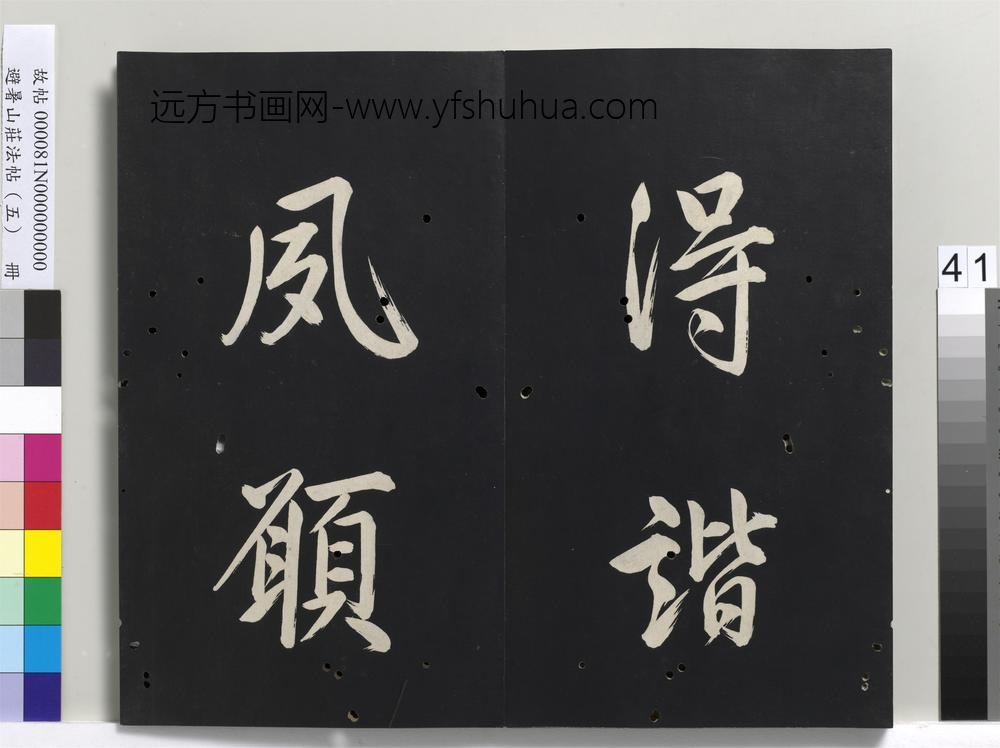 远方书画网-www.yfshuhua.com
得諧
夙願
故帖 000081N000000000
避暑山莊法帖（五） 冊
41